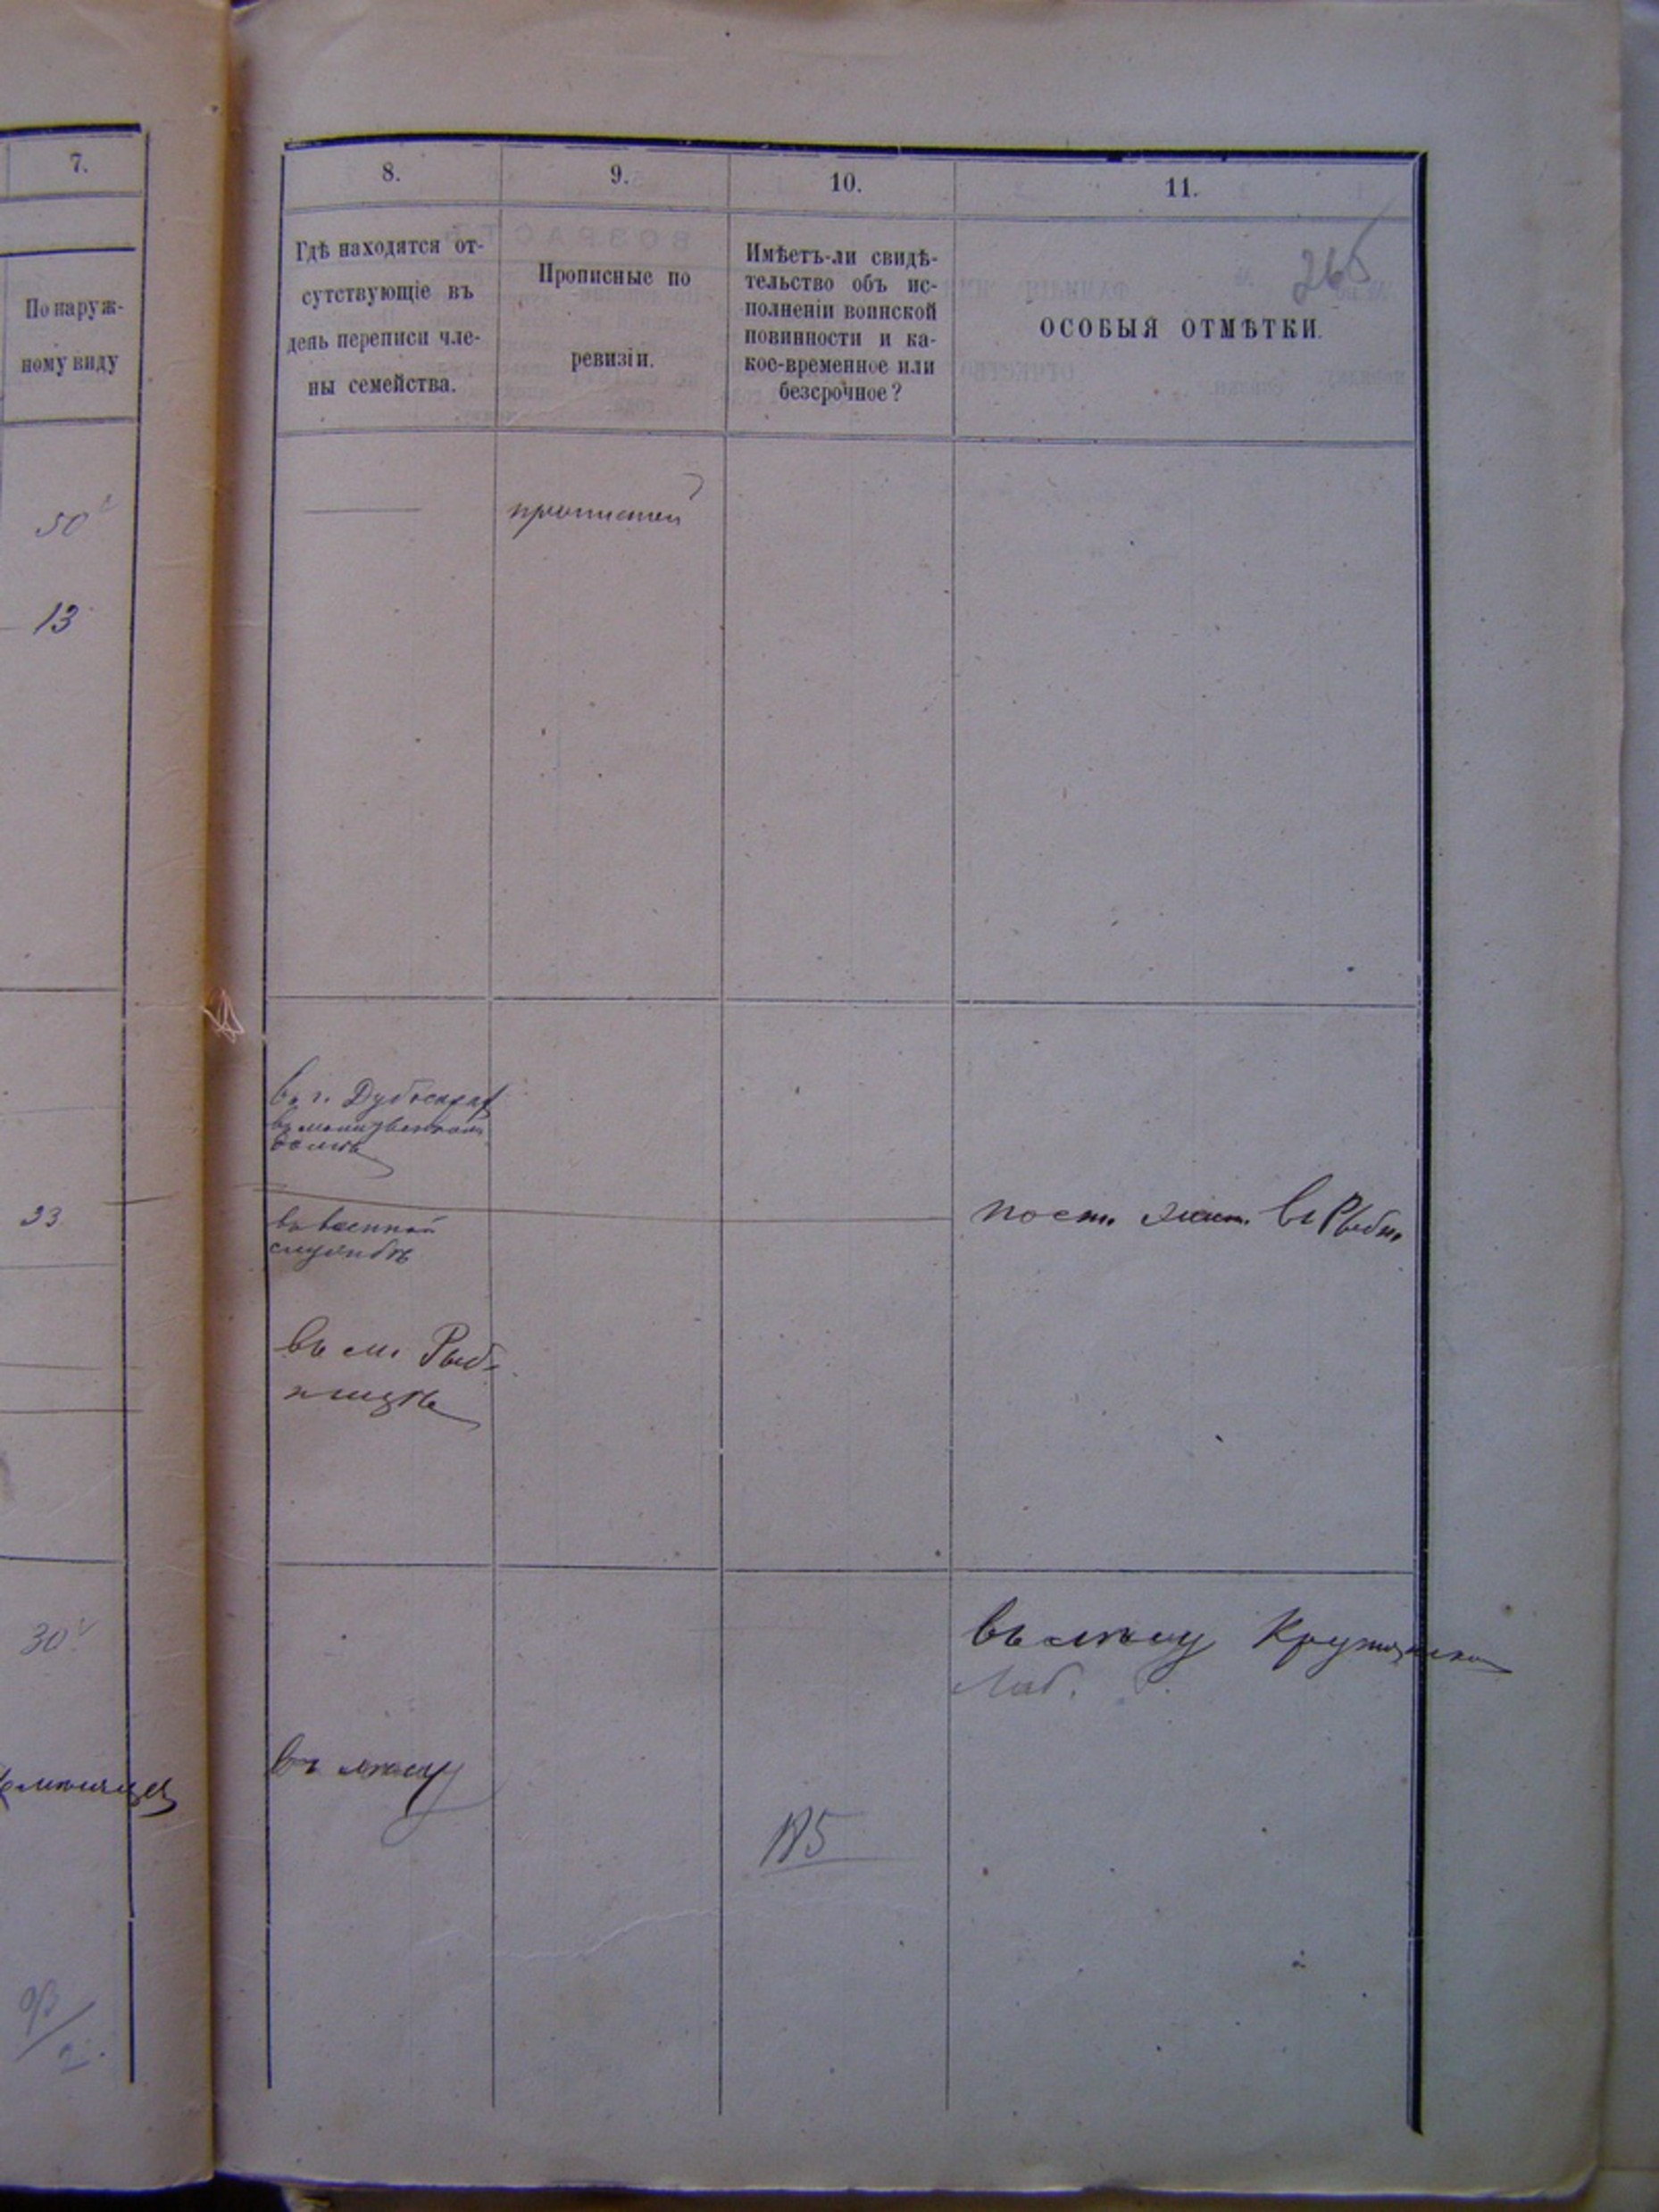 7.
По наруж-
ному виду
50
13
33
30
8.
9.
10.
11.
Гдѣ находятся от-
сутствующіе въ
день переписи чле-
ны семейства.
Прописные по
ревизіи.
Имѣетъ-ли свидѣ-
тельство объ ис-
полненіи воинской
повинности и ка-
кое-временное или
безсрочное?
265
ОСОБЫЯ ОТМѢТКИ.
прописной
въ г. Дубосарах
въ молитвенном
домѣ
въ военной
службѣ
пост. жит. въ Рыбн.
въ м. Рыб-
ницѣ
въ
въ
185